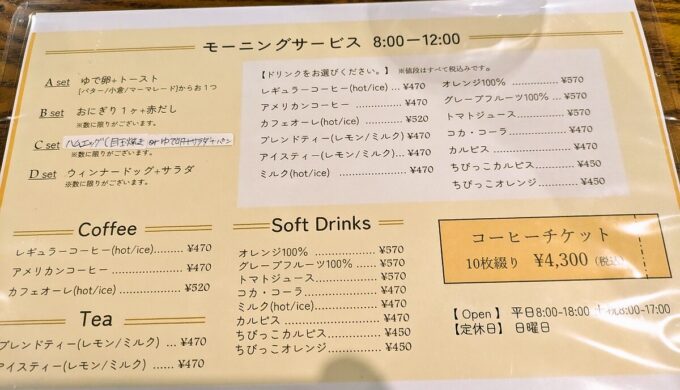 モーニングサービス 8:00ー12:00
A set ゆで卵+トースト
[バター/小倉/マーマレード]からお1つ
B set おにぎり1ヶ+赤だし
※数に限りがございます。
C set ハムエッグ(目玉焼き or ゆで卵+サラダ+パン
※数に限りがございます。
D set ウィンナードッグ+サラダ
※数に限りがございます。
【ドリンクをお選びください。】 ※値段はすべて税込みです。
レギュラーコーヒー(hot/ice) ¥470
アメリカンコーヒー ¥470
カフェオーレ(hot/ice) ¥520
ブレンドティー(レモン/ミルク) ¥470
アイスティー(レモン/ミルク)... ¥470
ミルク(hot/ice) ¥470
オレンジ100% ¥570
グレープフルーツ100% ¥570
トマトジュース ¥570
コカ・コーラ ¥470
カルピス ¥470
ちびっこカルピス ¥450
ちびっこオレンジ ¥450
Coffee
レギュラーコーヒー(hot/ice)......... ¥470
アメリカンコーヒー ¥470
カフェオーレ(hot/ice) ¥520
Tea
ブレンドティー(レモン/ミルク) ... ¥470
アイスティー(レモン/ミルク) ...... ¥470
Soft Drinks
オレンジ100% ¥570
グレープフルーツ100% ¥570
トマトジュース ¥570
コカ・コーラ ¥470
ミルク(hot/ice) ¥470
カルピス ¥470
ちびっこカルピス ¥450
ちびっこオレンジ ¥450
コーヒーチケット
10枚綴り ¥4,300 (税込)
【 Open 】 平日8:00-18:00 祝8:00-17:00
【定休日】 日曜日